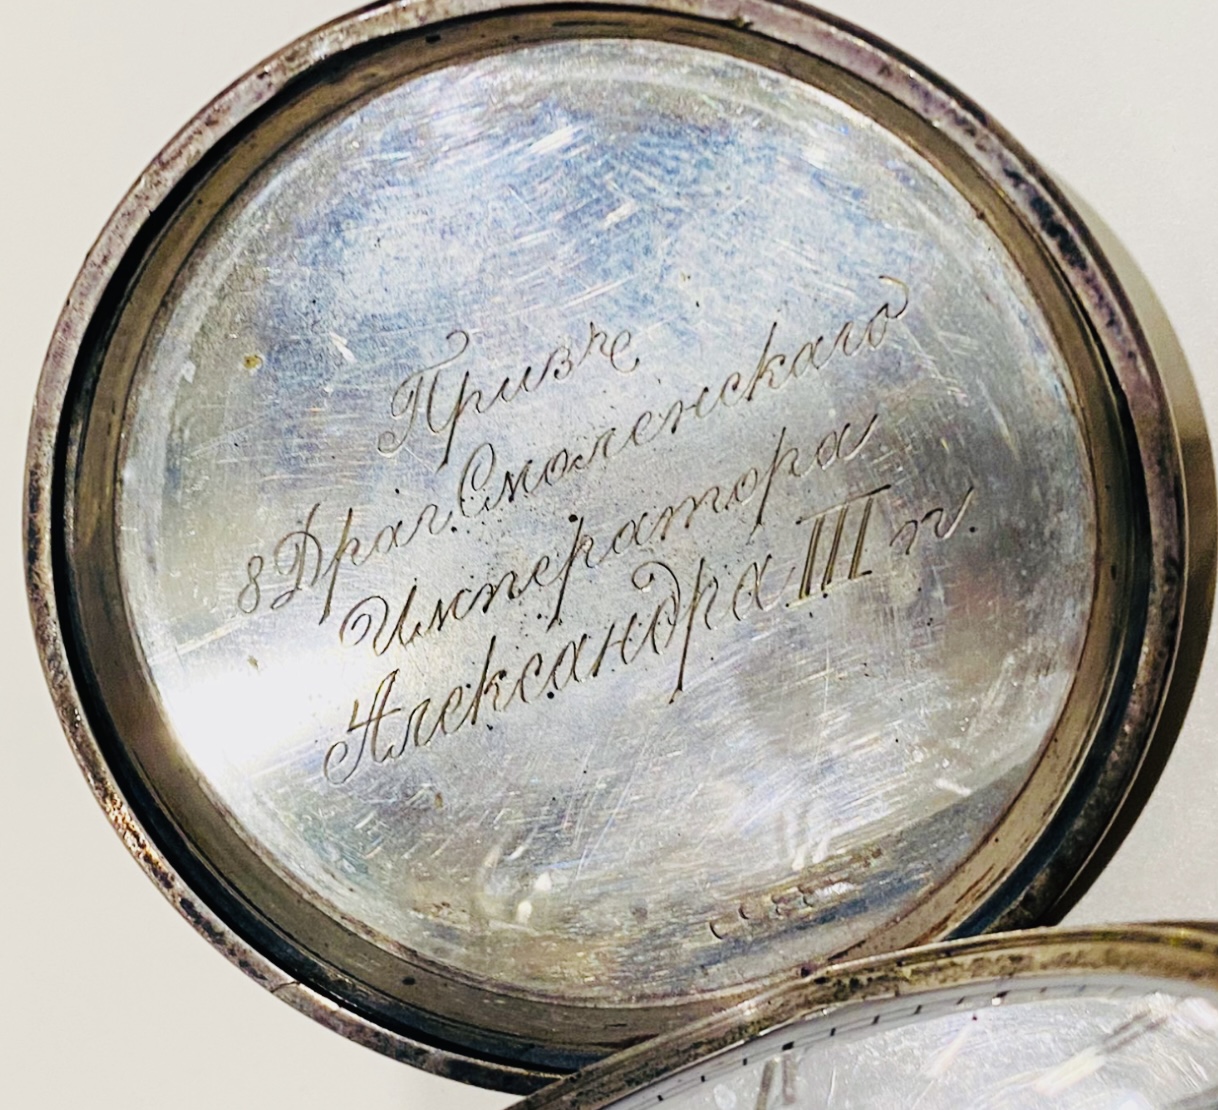 Призъ
8 Драг. Смоленскаго
Императора
Александра III п.